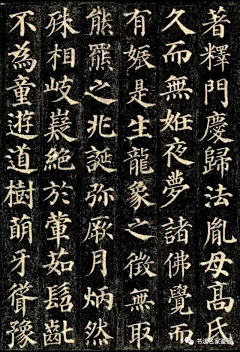 著釋門慶歸法胤母髙氏
久而無姙夜夢諸佛覺而
有娠是生龍象之徵無取
熊羆之兆誕弥厥月炳然
殊相岐嶷絕於葷茹髫齔
不為童遊道樹萌牙聳豫
书法名家